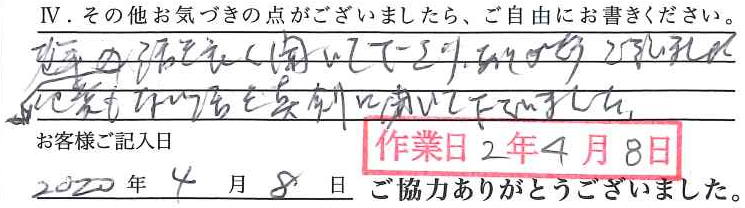 Ⅳ. その他お気づきの点がございましたら、ご自由にお書きください。
の話を良く聞いて下さり、ありがとうございました
もない話を真剣に聞いて下さいました。
お客様ご記入日
作業日 2年4月8日
2020年4月8日 ご協力ありがとうございました。